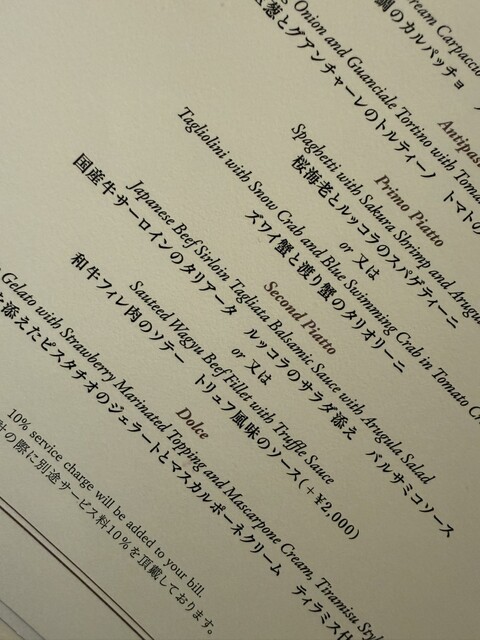 ream Carpaccio
鯛のカルパッチョ
Onion and Guanciale Tortino with Toma
葱とグアンチャーレのトルティーノ トマトの
Antipas
Primo Piatto
Spaghetti with Sakura Shrimp and Arugu
桜海老とルッコラのスパゲティーニ
or 又は
Tagliolini with Snow Crab and Blue Swimming Crab in Tomato Cr
ズワイ蟹と渡り蟹のタリオリーニ
Second Piatto
Japanese Beef Sirloin Tagliata Balsamic Sauce with Arugula Salad
国産牛サーロインのタリアータ ルッコラのサラダ添え バルサミコソース
or 又は
Sauteed Wagyu Beef Fillet with Truffle Sauce
和牛フィレ肉のソテー トリュフ風味のソース(+¥2,000)
Dolce
Gelato with Strawberry Marinated Topping and Mascarpone Cream, Tiramisu Style
を添えたピスタチオのジェラートとマスカルポーネクリーム ティラミス
10% service charge will be added to your bill.
計の際に別途サービス料10%を頂戴しております。